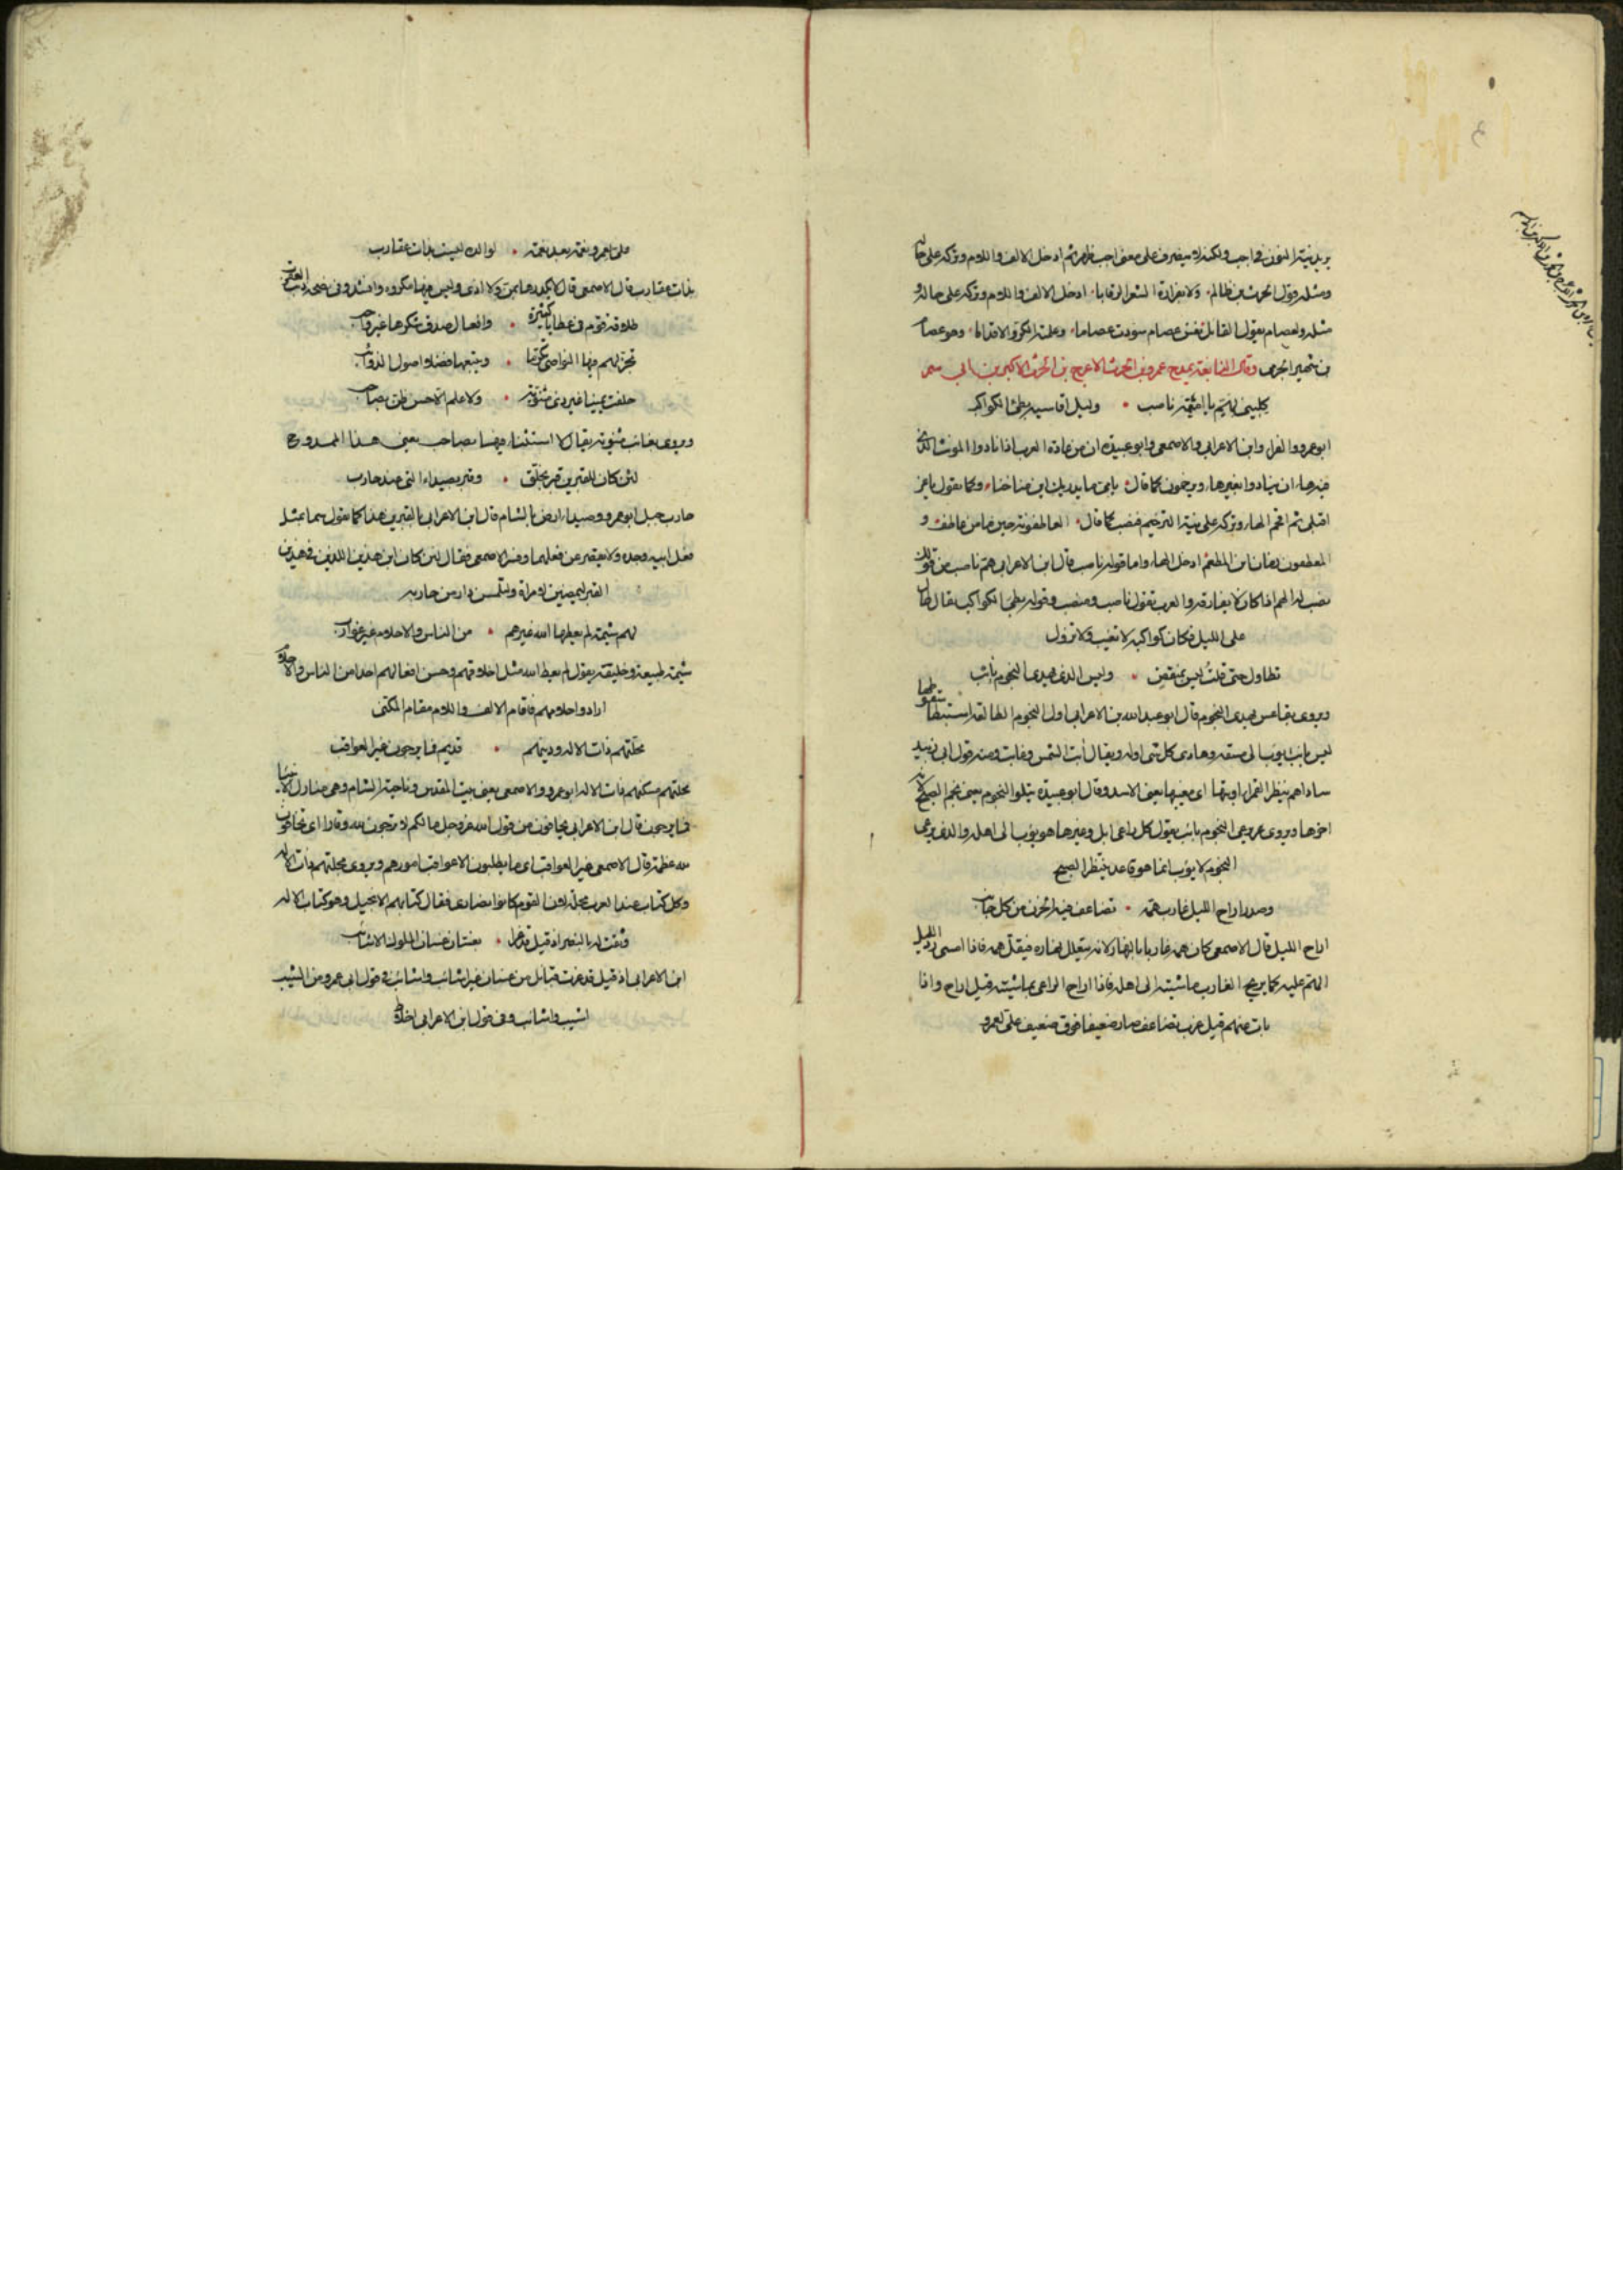 يريد نية التنوين في اجب ولكنه لا ينصرف على معنى اجب ظهره ثم ادخل الالف واللام وتركه على حاله
ومثله قول الحرث بن ظالم ولا بفزارة الشعر الرقابا ادخل الالف واللام وتركه على حاله و
مثله ولعصام يقول القائل نفس عصام سودت عصاما وعلمته الكر والاقداما وهو عصام
بن شهبر الجرمى وقال النابغة يمدح عمرو بن الحرث الاعرج بن الحرث الاكبر بن ابى شمر
كلينى لهم يا اميمة ناصب • وليل اقاسيه بطئ الكواكب
ابو عمرو والفراء وابن الاعرابى والاصمعى وابو عبيدة ان من عادة العرب اذا نادوا المونث الذى
فيه هاء ان ينادوا بغير هاء ويرخمون كما قال وكما تقول يا عز
اقبلى ثم اقحم الهاء وتركه على نية الترخيم فنصب كما قال العاطفونه حين ما من عاطف و
المطعمون زمان اين المطعم ادخل الهاء واما قوله ناصب قال ابن الاعرابى هم ناصب من قولك
نصب له الهم اذا كان لا يفارقه والعرب تقول ناصب ومنصب وقوله بطئ الكواكب يقال طال
على الليل فكان كواكبه لا تغيب ولا تزول
تطاول حتى قلت ليس بمنقض • وليس الذى يهدى النجوم بآئب
ويروى تقاعس يهدى النجوم قال ابو عبد الله بن الاعرابى اول النجوم الطالعة استبطا سقوطها
ليس بائب ايوب الى مسقطه وهادى كل شى اوله ويقال آبت الشمس وغابت ومنه قول ابى زبيد
اى مغيبها يعنى الاسد وقال ابو عبيدة يتلو النجوم يعنى نجم الصبح لانه
اخرها ويروى يرعى النجوم بائب يقول كل راعى ابل وغيرها هو يؤب الى اهله والذى يرعى
النجوم لا يؤب انما هو قاعد ينتظر الصبح
وصدر اراح الليل عازب همه • تضاعف فيه الحزن من كل جانب
اراح الليل قال الاصمعى كان همه عازبا بالنهار لانه يتعلل نهاره فيقل همه فاذا امسى رد الليل
الهم عليه كما يريح العازب ماشيته الى اهله فاذا اراح الراعى ماشيته قيل اراح واذا
بات عنهم قيل عزب تضاعف صار ضعيفا فوق ضعيف على لعمرو
على لعمرو نعمة بعد نعمة • لوالده ليست بذات عقارب
بذات عقارب قال الاصمعى قال لا يكدرها بمن ولا اذى وليس فيها مكروه وانشد
وافعال صدق شكرها غير واجب
تجز لهم فيها النواصى تكرما • ويتبعها فضلا اصول الذوائب
حلفت يمينا غير ذى مثنوية • ولا علم الا حسن ظن بصاحب
ويروى بغائب مثنوية يقال لا استثناء فيها بصاحب يعنى هذا الممدوح
لئن كان للقبرين قبر بجلق • وقبر بصيداء التى عند حارب
حارب جبل ابو عمرو وصيداء ارض بالشام قال ابن الاعرابى بالقبرين هذا كما تقول بمثل
فعل ابيه وجده ولا يقصر عن فعلهما وفسر الاصمعى فقال لئن كان ابن هذين اللذين فى هذين
القبرين ليمضين لامره وليلتمسن دار من حاربه
لهم شيمة لم يعطها الله غيرهم • من الناس والاحلام غير عوازب
شيمة طبيعة وخليقة يقول لم يعط الله مثل اخلاقهم وحسن افعالهم احدا من الناس والاحلام
اراد واحلامهم فاقام الالف واللام مقام المكنى
محلتهم ذات الاله ودينهم • قديم فما يرجون غير العواقب
محلتهم مسكنهم ذات الاله ابو عمرو والاصمعى يعنى بيت المقدس وناحية الشام وهى منازل الانبياء
فما يرجون قال ابن الاعرابى يخافون من قول الله عز وجل ما لكم لا ترجون لله وقارا اى تخافون
لله عظمة قال الاصمعى غير العواقب اى ما يطلبون الا عواقب امورهم ويروى مجلتهم ذات الاله
وكل كتاب عند العرب مجلة لان القوم كانوا نصارى فقال كتابهم الانجيل وهو كتاب الاله
وثقت له بالنصر اذ قيل قد غزا • بغسان غسان الملوك الاشائب
ابن الاعرابى اذ قيل قد غزت قبائل من غسان غير اشائب واشائب فى قول ابى عمرو من الشيب
اشيب واشائب وفى قول ابن الاعرابى اخلاط